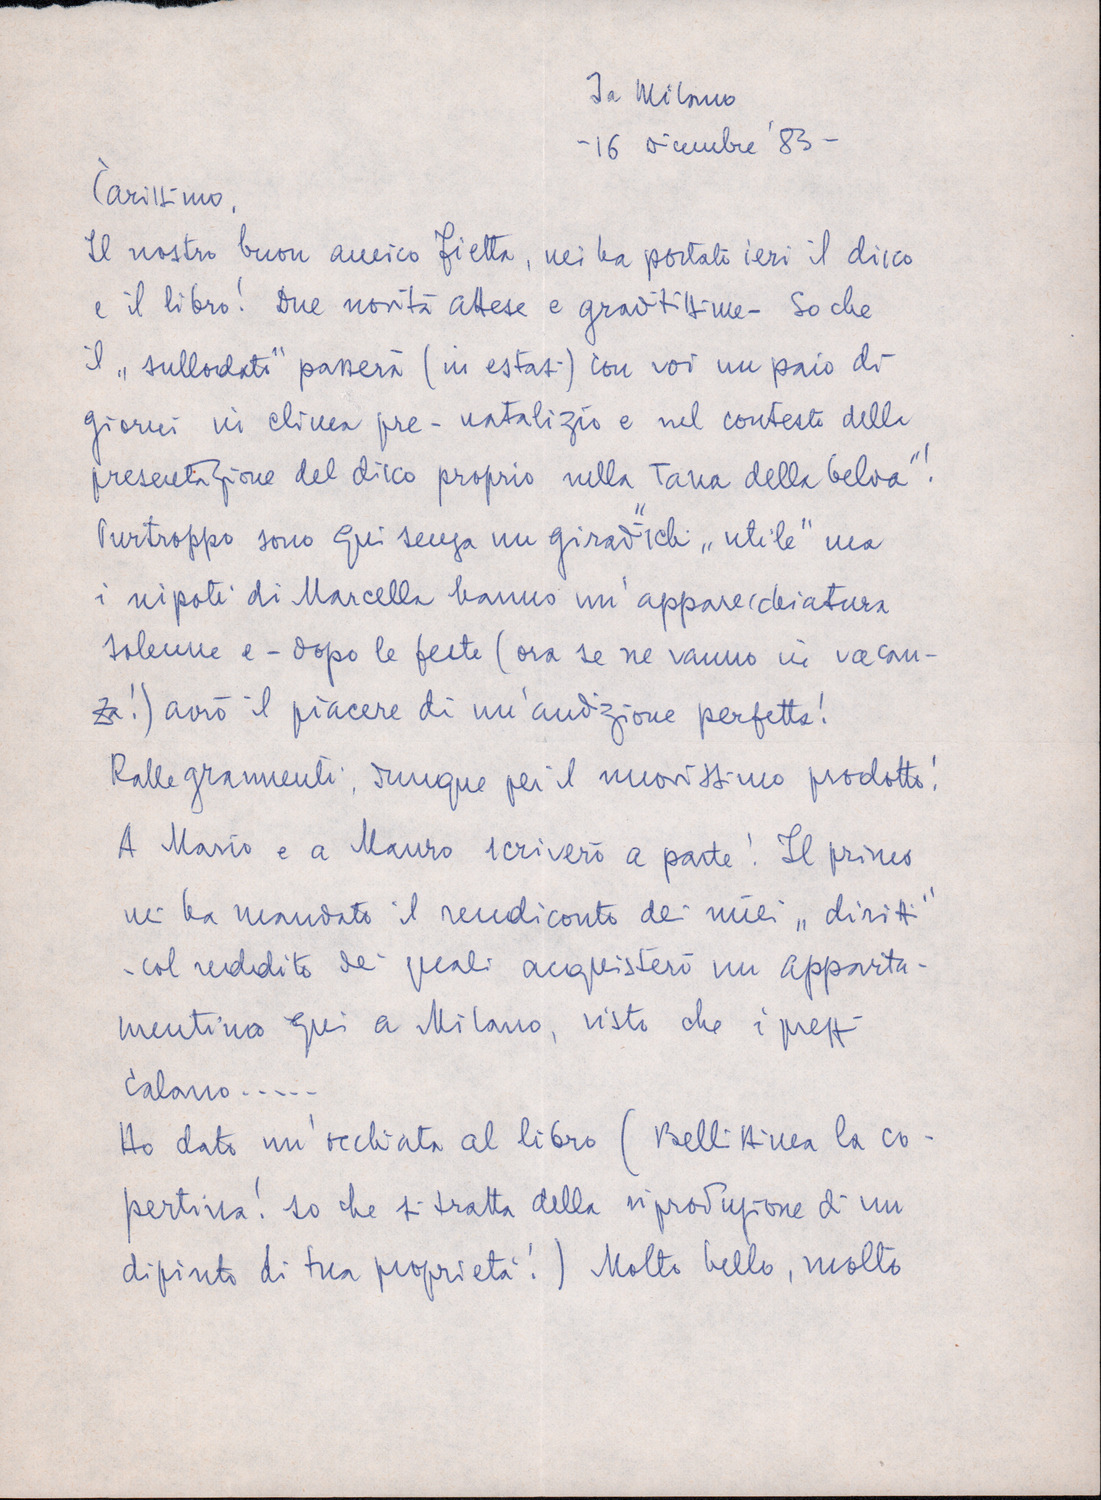 Da Milano
-16 dicembre '83-
Carissimo,
Il nostro buon amico Fietta, mi ha portato ieri il disco
e il libro! Due novità attese e graditissime- So che
il „sullodato" passerà (in estasi) con voi un paio di
giorni in clima pre-natalizio e nel contesto della
presentazione del disco proprio nella Tana della belva"!
Purtroppo sono qui senza un giradischi „utile" ma
i nipoti di Marcella hanno un'apparecchiatura
solenne e - dopo le feste (ora se ne vanno in vacan-
za!) avrò il piacere di un'audizione perfetta!
Rallegramenti, dunque per il nuovissimo prodotto!
A Mario e a Mauro scriverò a parte! Il primo
mi ha mandato il rendiconto dei miei „diritti"
-col reddito dei quali acquisterò un apparta-
mentino qui a Milano, visto che i prezzi
calano.....
Ho dato un'occhiata al libro (Bellissima la co-
pertina! so che si tratta della riproduzione di un
dipinto di tua proprietà!) Molto bello, molto